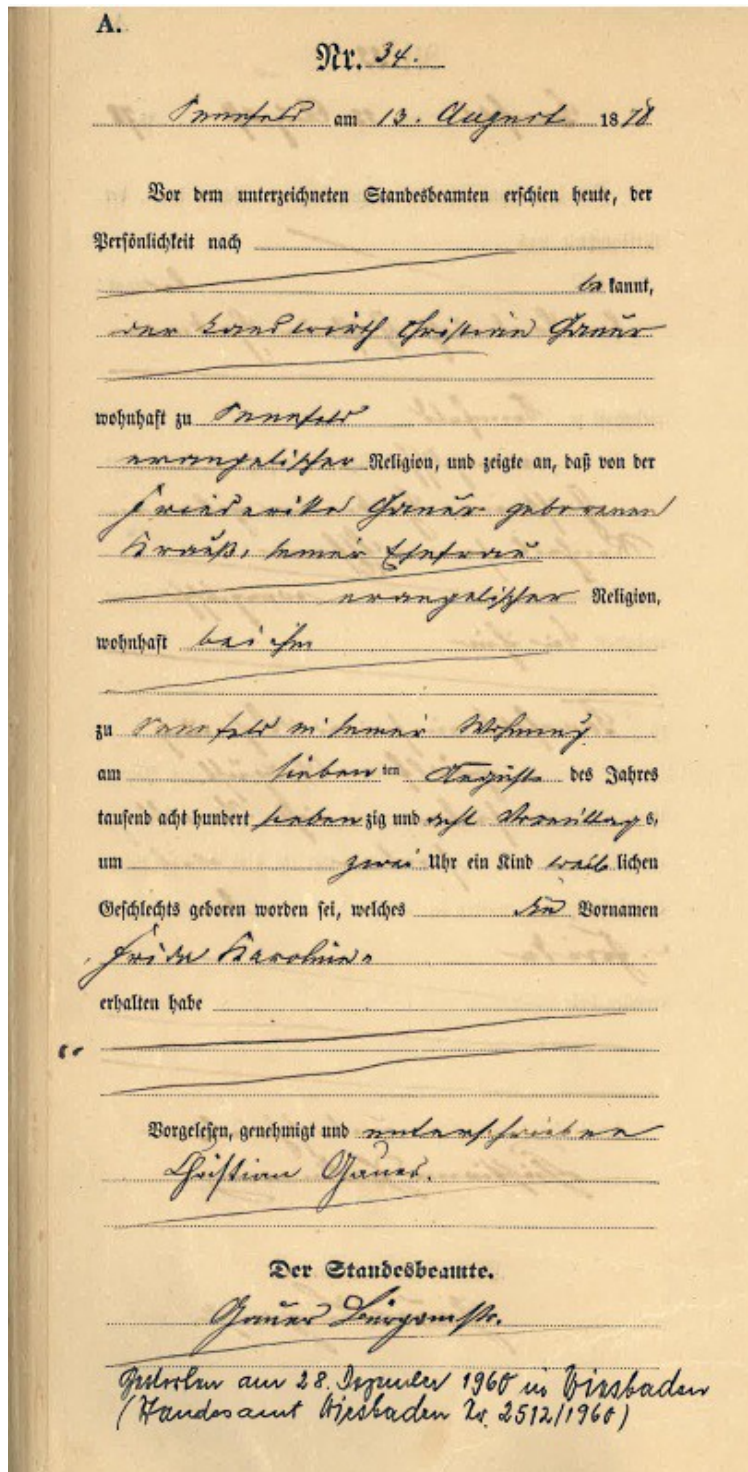 A.
Nr. 34.
Sennfeld am 13. August 1878
Vor dem unterzeichneten Standesbeamten erschien heute, der
Persönlichkeit nach
be kannt,
der Landwirth Christian Gauer
wohnhaft zu Sennfeld
evangelischer Religion, und zeigte an, daß von der
Friederike Gauer geborenen
Krauß, seiner Ehefrau
evangelischer Religion,
wohnhaft bei ihm
zu Sennfeld in seiner Wohnung
am sieben ten August des Jahres
tausend acht hundert sieben zig und acht Vormittags,
um zwei Uhr ein Kind weib lichen
Geschlechts geboren worden sei, welches die Vornamen
Frida Karoline
erhalten habe
Vorgelesen, genehmigt und unterschrieben
Christian Gauer.
Der Standesbeamte.
Gauer Bürgermstr.
Gestorben am 28. Dezember 1960 in Wiesbaden
(Standesamt Wiesbaden Nr. 2512/1960)